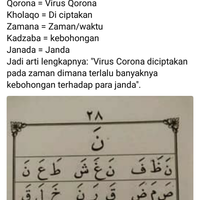 Qorona = Virus Qorona
Kholaqo = Di ciptakan
Zamana = Zaman/waktu
Kadzaba = kebohongan
Janada = Janda
Jadi arti lengkapnya: "Virus Corona diciptakan
pada zaman dimana terlalu banyaknya
kebohongan terhadap para janda".
٢٨
نَ
نَظَفَ نَغَشَ طَعَنَ
قَرَنَ خَلَقَ